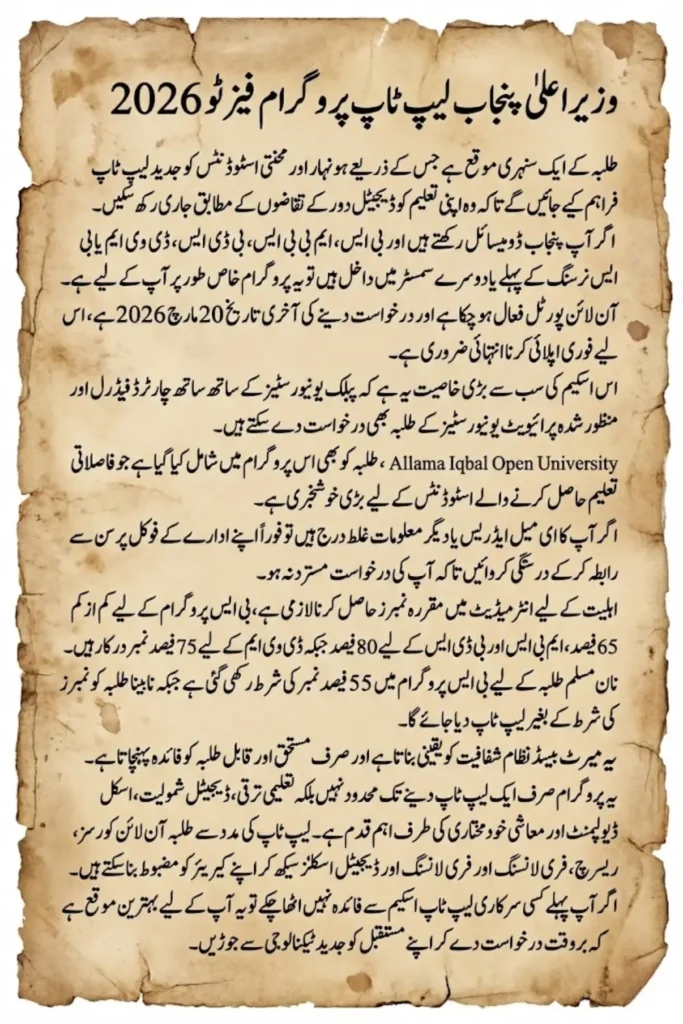 وزیراعلیٰ پنجاب لیپ ٹاپ پروگرام فیز ٹو 2026
طلبہ کے ایک سنہری موقع ہے جس کے ذریعے ہونہار اور محنتی اسٹوڈنٹس کو جدید لیپ ٹاپ
فراہم کیے جائیں گے تاکہ وہ اپنی تعلیم کو ڈیجیٹل دور کے تقاضوں کے مطابق جاری رکھ سکیں۔
اگر آپ پنجاب ڈومیسائل رکھتے ہیں اور بی ایس، ایم بی بی ایس، بی ڈی ایس، ڈی وی ایم یا بی
ایس نرسنگ کے پہلے یا دوسرے سمسٹر میں داخل ہیں تو یہ پروگرام خاص طور پر آپ کے لیے ہے۔
آن لائن پورٹل فعال ہو چکا ہے اور درخواست دینے کی آخری تاریخ 20 مارچ 2026 ہے، اس
لیے فوری اپلائی کرنا انتہائی ضروری ہے۔
اس اسکیم کی سب سے بڑی خاصیت یہ ہے کہ پبلک یونیورسٹیز کے ساتھ ساتھ چارٹرڈ فیڈرل اور
منظور شدہ پرائیویٹ یونیورسٹیز کے طلبہ بھی درخواست دے سکتے ہیں۔
Allama Iqbal Open University ، طلبہ کو بھی اس پروگرام میں شامل کیا گیا ہے جو فاصلاتی
تعلیم حاصل کرنے والے اسٹوڈنٹس کے لیے بڑی خوشخبری ہے۔
اگر آپ کا ای میل ایڈریس یا دیگر معلومات غلط درج ہیں تو فوراً اپنے ادارے کے فوکل پرسن سے
رابطہ کر کے درستگی کروائیں تاکہ آپ کی درخواست مسترد نہ ہو۔
اہلیت کے لیے انٹرمیڈیٹ میں مقررہ نمبرز حاصل کرنا لازمی ہے، بی ایس پروگرام کے لیے کم از کم
65 فیصد، ایم بی ایس اور بی ڈی ایس کے لیے 80 فیصد جبکہ ڈی وی ایم کے لیے 75 فیصد نمبر درکار ہیں۔
نان مسلم طلبہ کے لیے بی ایس پروگرام میں 55 فیصد نمبر کی شرط رکھی گئی ہے جبکہ نابینا طلبہ کو نمبرز
کی شرط کے بغیر لیپ ٹاپ دیا جائے گا۔
یہ میرٹ بیسڈ نظام شفافیت کو یقینی بناتا ہے اور صرف مستحق اور قابل طلبہ کو فائدہ پہنچاتا ہے۔
یہ پروگرام صرف ایک لیپ ٹاپ دینے تک محدود نہیں بلکہ تعلیمی ترقی، ڈیجیٹل شمولیت، اسکل
ڈیولپمنٹ اور معاشی خود مختاری کی طرف اہم قدم ہے۔ لیپ ٹاپ کی مدد سے طلبہ آن لائن کورسز،
ریسرچ، فری لانسنگ اور فری لانسنگ اور ڈیجیٹل اسکلز سیکھ کر اپنے کیریئر کو مضبوط بنا سکتے ہیں۔
اگر آپ پہلے کسی سرکاری لیپ ٹاپ اسکیم سے فائدہ نہیں اٹھا چکے تو یہ آپ کے لیے بہترین موقع ہے
کہ بروقت درخواست دے کر اپنے مستقبل کو جدید ٹیکنالوجی سے جوڑیں۔